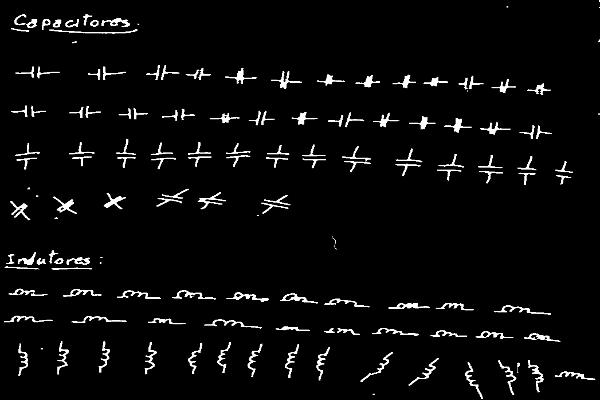 Capacitores:
Indutores: